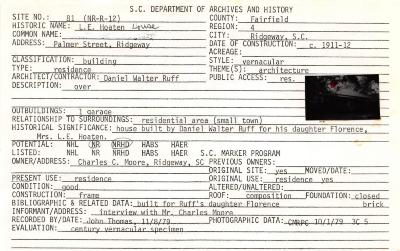 S.C. DEPARTMENT OF ARCHIVES AND HISTORY
SITE NO.: 81 (NR-R-12) COUNTY: Fairfield
HISTORIC NAME: L.E. Hoaten House REGION: 4
COMMON NAME: CITY: Ridgeway, S.C.
ADDRESS: Palmer Street, Ridgeway DATE OF CONSTRUCTION: c. 1911-12
ACREAGE:
CLASSIFICATION: building STYLE: vernacular
TYPE: residence THEME(S): architecture
ARCHITECT/CONTRACTOR: Daniel Walter Ruff PUBLIC ACCESS: res.
DESCRIPTION: over
OUTBUILDINGS: 1 garage
RELATIONSHIP TO SURROUNDINGS: residential area (small town)
HISTORICAL SIGNIFICANCE: house built by Daniel Walter Ruff for his daughter Florence,
Mrs. L.E. Hoaten.
POTENTIAL: NHL NR NRHD HABS HAER
LISTED: NHL NR NRHD HABS HAER S.C. MARKER PROGRAM
OWNER/ADDRESS: Charles C. Moore, Ridgeway, SC PREVIOUS OWNERS:
ORIGINAL SITE: yes MOVED/DATE:
PRESENT USE: residence ORIGINAL USE: residence yes
CONDITION: good ALTERED/UNALTERED:
CONSTRUCTION: frame ROOF: composition FOUNDATION: closed
BIBLIOGRAPHIC & RELATED DATA: built for Ruff's daughter Florence brick
INFORMANT/ADDRESS: interview with Mr. Charles Moore
RECORDED BY/DATE: John Thomas, 11/8/79 PHOTOGRAPHIC DATA: CMRPC 10/1/79 3C 5
EVALUATION: century vernacular specimen